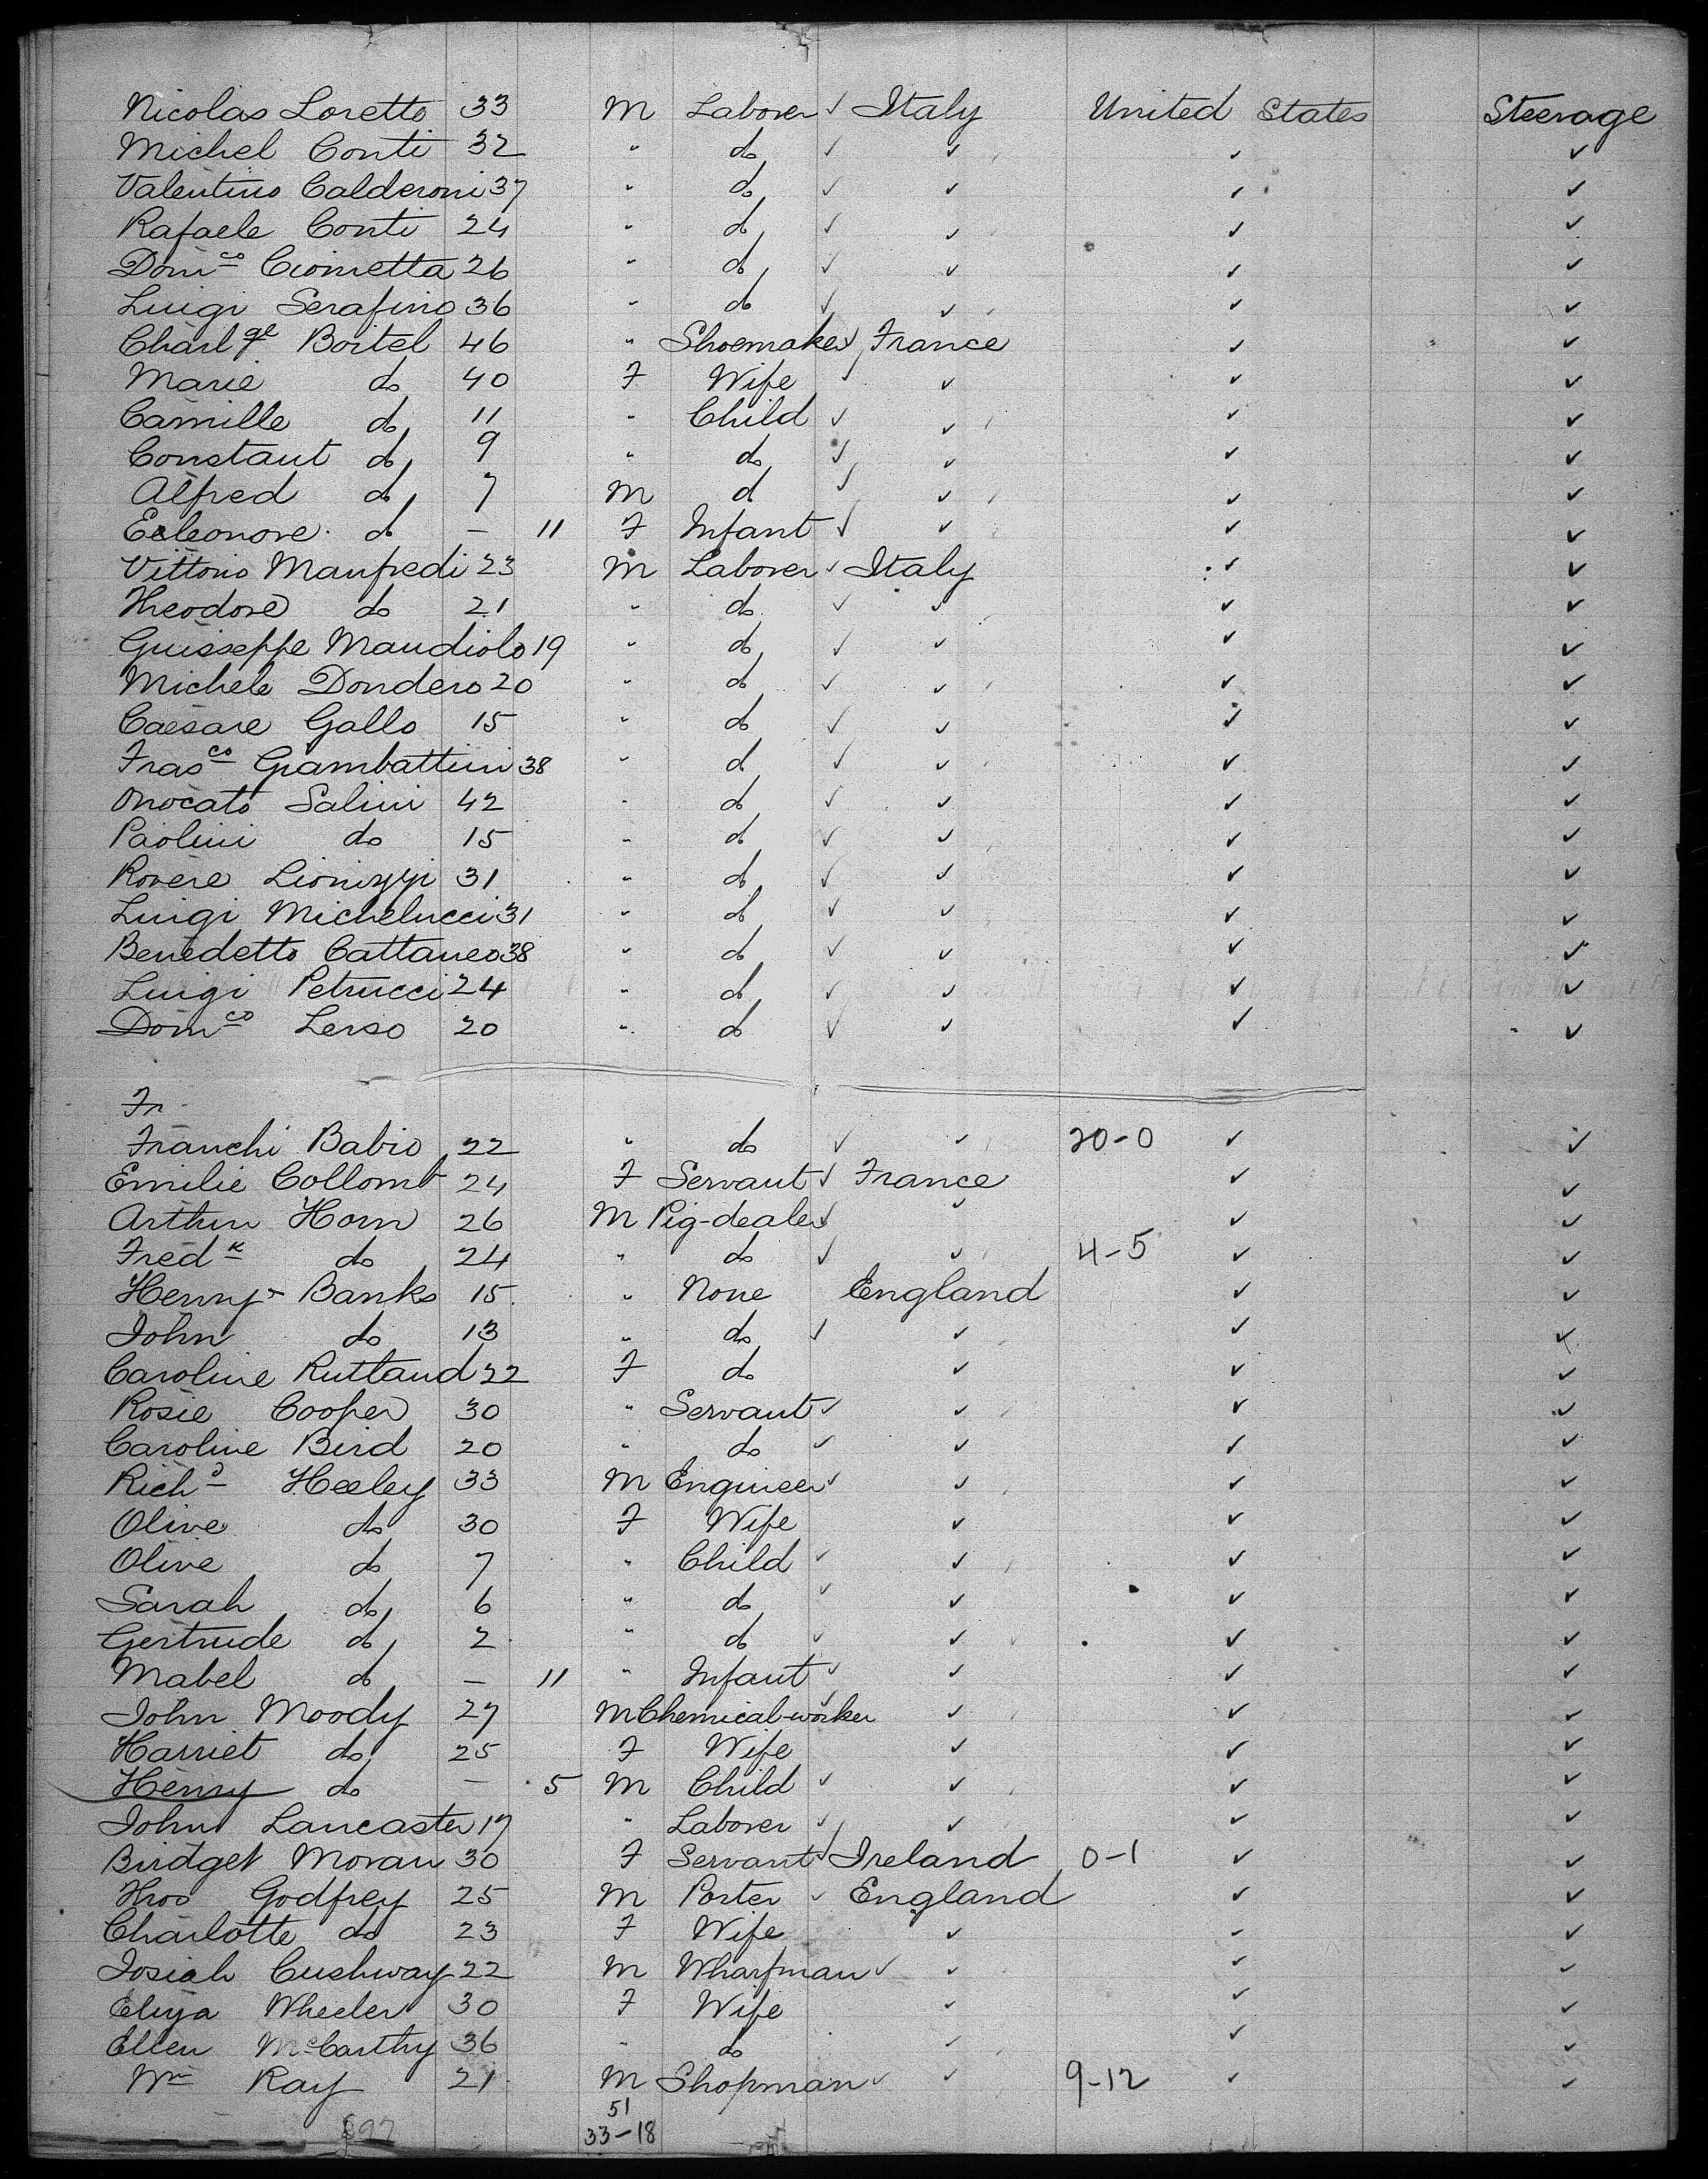 Nicolas Loretto 33 M Laborer ✓ Italy United States Steerage
Michel Conti 32 " do ✓ ✓ ✓ ✓
Valentino Calderoni 37 " do ✓ ✓ ✓ ✓
Rafaele Conti 24 " do ✓ ✓ ✓ ✓
Domco Ciometta 26 " do ✓ ✓ ✓ ✓
Luigi Serafino 36 " do ✓ ✓ ✓ ✓
Charl Boitel 46 " Shoemaker ✓ France ✓ ✓
Marie do 40 F Wife ✓ ✓ ✓ ✓
Camille do 11 " Child ✓ ✓ ✓ ✓
Constant do 9 " do ✓ ✓ ✓ ✓
Alfred do 7 M do ✓ ✓ ✓ ✓
Eeleonore do — 11 F Infant ✓ ✓ ✓ ✓
Vittorio Manfredi 23 M Laborer ✓ Italy ✓ ✓
Theodore do 21 " do ✓ ✓ ✓ ✓
Guisseppe Maudiolo 19 " do ✓ ✓ ✓ ✓
Michele Dondero 20 " do ✓ ✓ ✓ ✓
Caesare Gallo 15 " do ✓ ✓ ✓ ✓
Frasco Giambattini 38 " do ✓ ✓ ✓ ✓
Onocato Salini 42 " do ✓ ✓ ✓ ✓
Paolini do 15 " do ✓ ✓ ✓ ✓
Rovere Lionizzi 31 " do ✓ ✓ ✓ ✓
Luigi Michelucci 31 " do ✓ ✓ ✓ ✓
Benedetto Cattaneo 38 " do ✓ ✓ ✓ ✓
Luigi Petrucci 24 " do ✓ ✓ ✓ ✓
Domco Lerso 20 " do ✓ ✓ ✓ ✓
Fr
Franchi Babio 22 " do ✓ ✓ 20-0 ✓ ✓
Emilie Collomb 24 F Servant ✓ France ✓ ✓
Arthur Horn 26 M Pig-dealer ✓ ✓ ✓ ✓
Fredk do 24 " do ✓ ✓ 4-5 ✓ ✓
Henry Banks 15 " None England ✓ ✓
John do 13 " do ✓ ✓ ✓ ✓
Caroline Rutland 22 F do ✓ ✓ ✓
Rosie Cooper 30 " Servant ✓ ✓ ✓ ✓
Caroline Bird 20 " do ✓ ✓ ✓ ✓
Richd Heeley 33 M Engineer ✓ ✓ ✓ ✓
Olive do 30 F Wife ✓ ✓ ✓
Olive do 7 " Child ✓ ✓ ✓ ✓
Sarah do 6 " do ✓ ✓ ✓ ✓
Gertrude do 2 " do ✓ ✓ ✓ ✓
Mabel do — 11 " Infant ✓ ✓ ✓ ✓
John Moody 27 M Chemical-worker ✓ ✓ ✓ ✓
Harriet do 25 F Wife ✓ ✓ ✓
Henry do — 5 M Child ✓ ✓ ✓ ✓
John Lancaster 17 " Laborer ✓ ✓ ✓ ✓
Birdget Moran 30 F Servant ✓ Ireland 0-1 ✓ ✓
Thos Godfrey 25 M Porter ✓ England ✓ ✓
Charlotte do 23 F Wife ✓ ✓ ✓
Josiah Cushway 22 M Wharfman ✓ ✓ ✓ ✓
Eliza Wheeler 30 F Wife ✓ ✓ ✓
Ellen McCarthy 36 " do ✓ ✓ ✓
Wm Ray 21 M Shopman ✓ ✓ 9-12 ✓ ✓
51
33-18